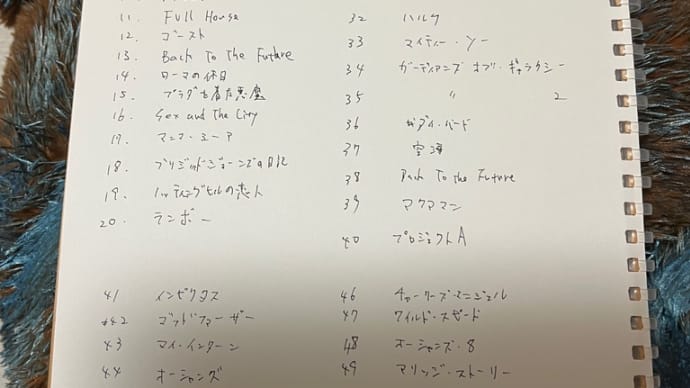 11. Full House
12. ゴースト
13. Back To The Future
14. ローマの休日
15. プラダを着た悪魔
16. Sex and The City
17. マンマ・ミーア
18. ブリジットジョーンズの日記
19. ノッティングヒルの恋人
20. ランボー
32 ハルク
33 マイティー・ソー
34 ガーディアンズ オブ・ギャラクシー
35 〃 2
36 バード
37 空海
38 Back To the Future
39 アクアマン
40 プロジェクトA
41 インビクタス
42 ゴッドファーザー
43 マイ・インターン
44 オーシャンズ
46 チャーリーズエンジェル
47 ワイルド・スピード
48 オーシャンズ・8
49 マリッジ・ストーリー